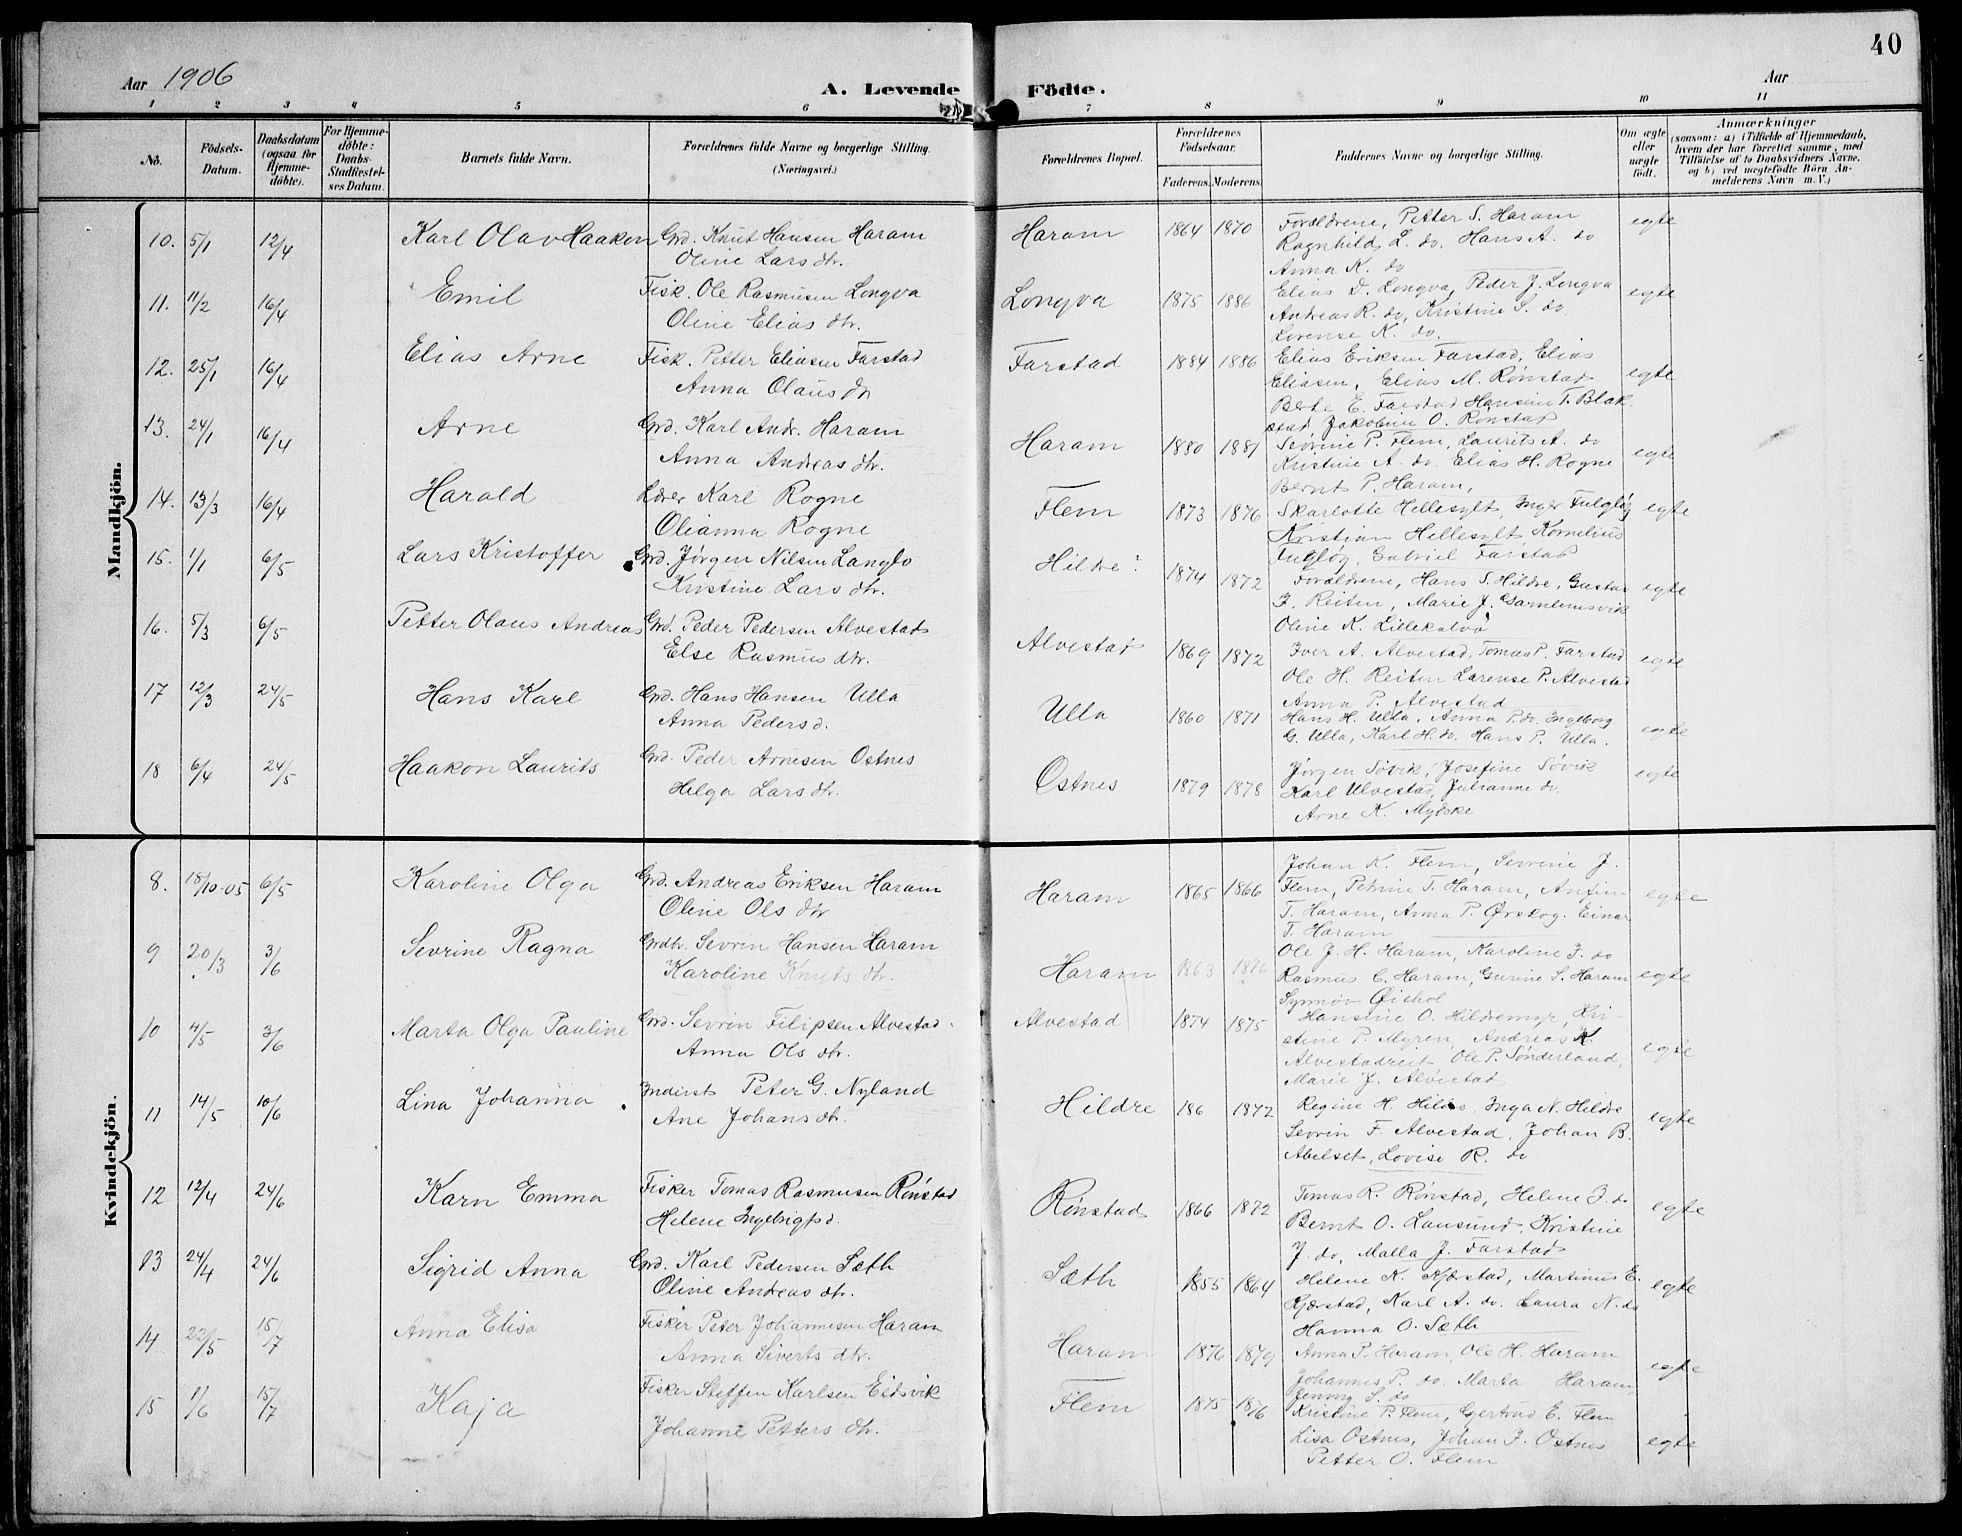 40
Aar 1906
A. Levende Födte.
Aar
1 2 3 4 5 6 7 8 9 10 11
No.
Födsels-
Datum.
Daabsdatum
(ogsaa for
Hjemme-
döbte).
For Hjemme-
döbte:
Daabs-
Stadfæstel-
ses Datum.
Barnets fulde Navn.
Forældrenes fulde Navne og borgerlige Stilling.
(Næringsvei.)
Forældrenes Bopæl.
Forældrenes
Födselsaar.
Faderens. Moderens.
Faddernes Navne og borgerlige Stilling.
Om ægte
eller
uægte
födt.
Anmærkninger
(saasom: a) i Tilfælde af Hjemmedaab,
hvem der har forrettet samme, med
Tilföielse af to Daabsvidners Navne,
og b) ved uægtefödte Börn An-
melderens Navn m. V.)
Mandkjön.
10. 5/1 12/4 Karl Olav Haakon Grd. Knut Hansen Haram
Oline Lars dtr.
Haram 1864 1870 Forældrene, Petter S. Haram
Ragnhild L. do. Hans A. do
Anna K. do
egte
11. 11/2 16/4 Emil Fisk. Ole Rasmusen Longva
Oline Elias dtr.
Longva 1875 1886 Elias D. Longva, Peder J. Longva
Andreas R. do, Kristine S. do.
Lorense K. do.
egte
12. 25/1 16/4 Elias Arne Fisk. Petter Eliasen Farstad
Anna Olaus dtr
Farstad 1884 1886 Elias Eriksen Farstad, Elias
Eliasen, Elias M. Rønstad
Berte E. Farstad Hansine T. Blak-
stad Jakobine O. Rønstad
egte
13. 24/1 16/4 Arne Grd. Karl Andr. Haram
Anna Andreas dtr.
Haram 1880 1881 Sevrine P. Flem, Laurits A. do
Kristine A. do. Elias H. Rogne
Bernt P. Haram,
egte
14. 13/3 16/4 Harald Lærer Karl Rogne
Olianna Rogne
Flem 1873 1876 Skarlotte Hellesylt, Inger Fugløy
Kristian Hellesylt, Kornelius
Fugløy, Gabriel Farstad
egte
15. 1/1 6/5 Lars Kristoffer Grd. Jørgen Nilsen Langlo
Kristine Lars dtr.
Hildre 1874 1872 Forældrene, Hans S. Hildre, Gustav
J. Reiten, Marie J. Gamlemsvik
Oline K. Lillekalvø
egte
16. 5/3 6/5 Petter Olaus Andreas Grd. Peder Pedersen Alvestad
Else Rasmus dtr.
Alvestad 1869 1872 Iver A. Alvestad, Tomas P. Farstad
Ole H. Reiten Larense P. Alvestad
Anna P. Alvestad
egte
17 12/3 24/5 Hans Karl Grd. Hans Hansen Ulla
Anna Peders d.
Ulla 1860 1871 Hans H. Ulla, Anna P. do. Ingeborg
G. Ulla, Karl H. do. Hans P. Ulla.
egte
18 6/4 24/5 Haakon Laurits Grd. Peder Arnesen Ostnes
Helga Lars dtr.
Ostnes 1879 1878 Jørgen Søvik, Josefine Søvik
Karl Ulvestad, Julianne do.
Arne K. Mydske
egte
Kvindekjön.
8. 18/10-05 6/5 Karoline Olga Grd. Andreas Eriksen Haram
Oline Ols dtr
Haram 1865 1866 Johan K. Flem, Sevrine J.
Flem, Petrine T. Haram, Anfinn
T. Haram, Anna P. Ørskog. Einar
T. Haram
egte
9 20/3 3/6 Sevrine Ragna Grdbr. Sevrin Hansen Haram
Karoline Knuts dtr.
Haram 1863 1876 Ole J. H. Haram, Karoline J. do
Rasmus E. Haram, Gurine S. Haram
Synnøv
egte
10 4/5 3/6 Marta Olga Pauline Grd. Sevrin Filipsen Alvestad.
Anna Ols dtr.
Alvestad 1874 1875 Hansine O. Hildremyr, Kri-
stine P. Myren, Andreas K.
Alvestadreit Ole P. Sønderland,
Marie J. Alvestad
egte
11 14/5 10/6 Lina Johanna Inderst Peter G. Nyland
Ane Johans dtr.
Hildre 186 1872 Regine H. Hildre, Inga N. Hildre
Sevrin F. Alvestad, Johan B.
Abelset, Lovise R. do
egte
12 12/4 24/6 Karn Emma Fisker Tomas Rasmusen Rønstad
Helene Ingebrigts d.
Rønstad 1866 1872 Tomas R. Rønstad, Helene J. do
Bernt O. Lausund, Kristine
J. do, Malla J. Farstad
egte
13 24/4 24/6 Sigrid Anna Grd. Karl Pedersen Sæth
Oline Andreas dtr.
Sæth 1855 1864 Helene K. Kjærstad, Martinus E.
Kjærstad, Karl A. do. Laura N. do
Hanna O. Sæth
egte
14 22/5 15/7 Anna Elisa Fisker Peter Johannesen Haram
Anna Siverts dtr.
Haram 1876 1879 Anna P. Haram, Ole H. Haram
Johannes P. do. Marta Haram,
Jenny S. do
egte
15 1/6 15/7 Kaja Fisker Steffen Karlsen Eidsvik
Johanne Petters dtr.
Flem 1875 1876 Kristine P. Flem, Gjertrud E. Flem
Lisa Ostnes, Johan J. Ostnes
Petter O. Flem
egte